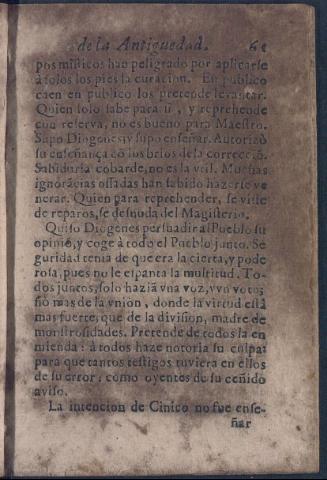 de la Antiguedad. 61
pos misticos han peligrado por aplicarse
à solos los pies la curacion. En publico
caen en publico los pretende levantar.
Quien solo sabe para sì, y reprehende
con reserva, no es bueno para Maestro.
Supo Diogenes, y supo enseñar. Autorizò
su enseñança cõ los brios de la correcciõ.
Sabiduria cobarde, no es la vtil. Muchas
ignorãcias ossadas han sabido hazerse ve
nerar. Quien para reprehender, se viste
de reparos, se desnuda del Magisterio.
Quiso Diogenes persuadir al Pueblo su
opiniõ, y coge à todo el Pueblo junto. Se
guridad tenia de que era la cierta, y pode
rosa, pues no le espanta la multitud. To-
dos juntos, solo haziã vna voz, y vn voto;
fiò mas de la vnion, donde la virtud està
mas fuerte, que de la division, madre de
monstrosidades. Pretende de todos la en
mienda: à todos haze notoria su culpa:
para que tantos testigos tuviera en ellos
de su error: como oyentes de su ceñido
aviso.
La intencion de Cinico no fue ense-
ñar